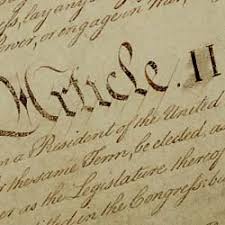 ress, lay any
ower, or engage in War,
Article. II
in a President of the United
r the same Term, be elected, as
er as the Legislature thereof
titled in the Congress: but